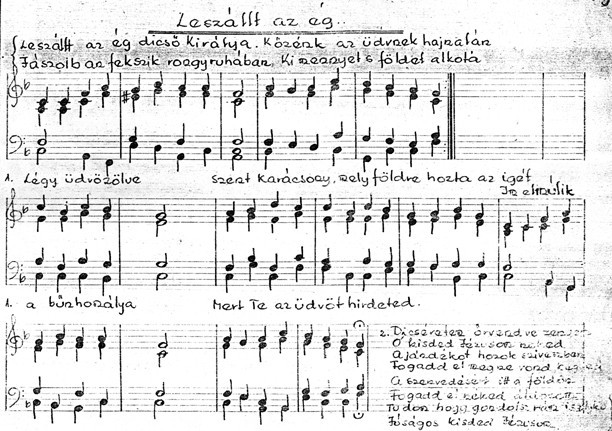 Leszállt az ég..
Leszállt az ég dicső Királya. Közénk az üdvnek hajnalán
Jászolban fekszik rongyruhában, Ki mennyet s földet alkota
1. Légy üdvözölve Szent Karácsony, mely földre hozta az igét
Im elmúlik
1. a bűnhomálya Mert Te az üdvöt hirdeted.
2. Dicséretem örvendve zengjet
Ó kisded Jézusom néked
Ajándékot hozok szivemben
Fogadd el
A szenvedését itt a földön
Fogadd el néked
Tudom hogy gondois
Jóságos kisded Jézusom.